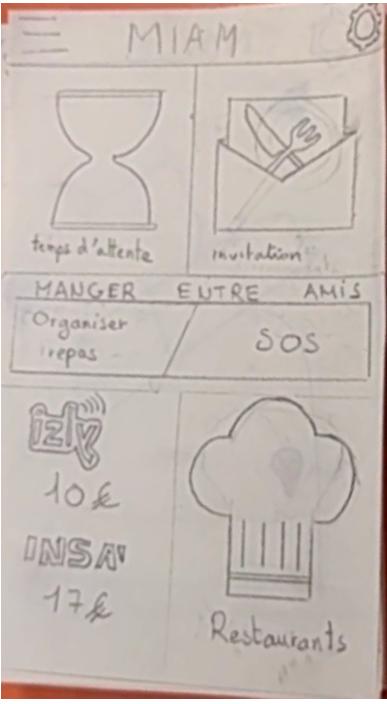 MIAM
temps d'attente
invitation
MANGER ENTRE AMIS
Organiser
repas
SOS
izly
10€
INSA
17€
Restaurants